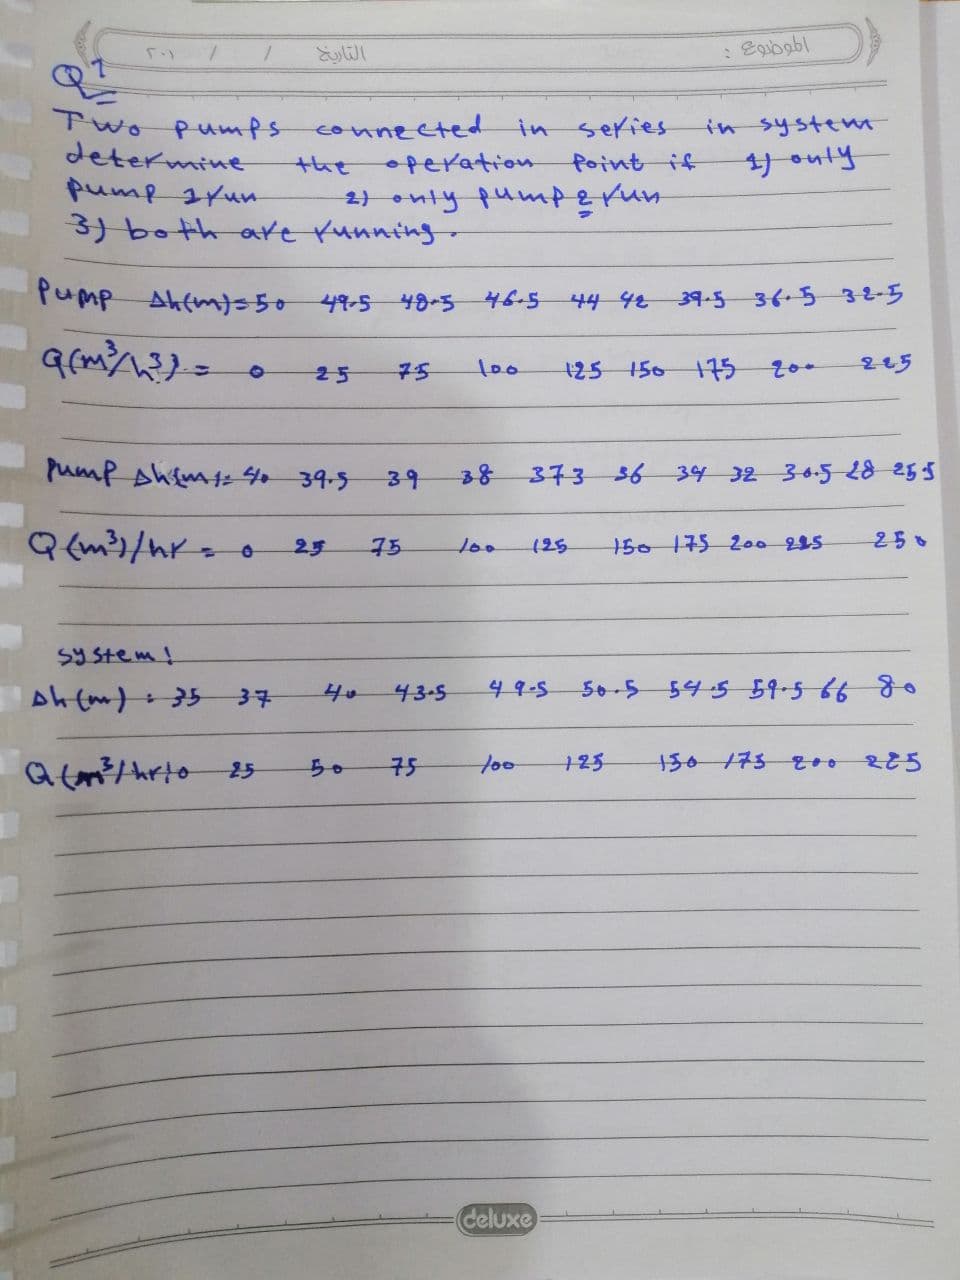 الموضوع :
التاريخ / / ٢٠١
Q1
Two pumps connected in series in system
determine the operation point if 1) only
pump 1 run 2) only pump 2 run
3) both are running.
Pump Δh(m)=50 49.5 48.5 46.5 44 42 39.5 36.5 32.5
Q(m³/h³) = 0 25 75 100 125 150 175 200 225
Pump Δh(m)= 40 39.5 39 38 373 36 34 32 30.5 28 25.5
Q(m³)/hr = 0 25 75 100 125 150 175 200 225 250
system!
Δh(m) : 35 37 40 43.5 49.5 50.5 54.5 59.5 66 80
Q(m³/hr)0 25 50 75 100 125 150 175 200 225
deluxe